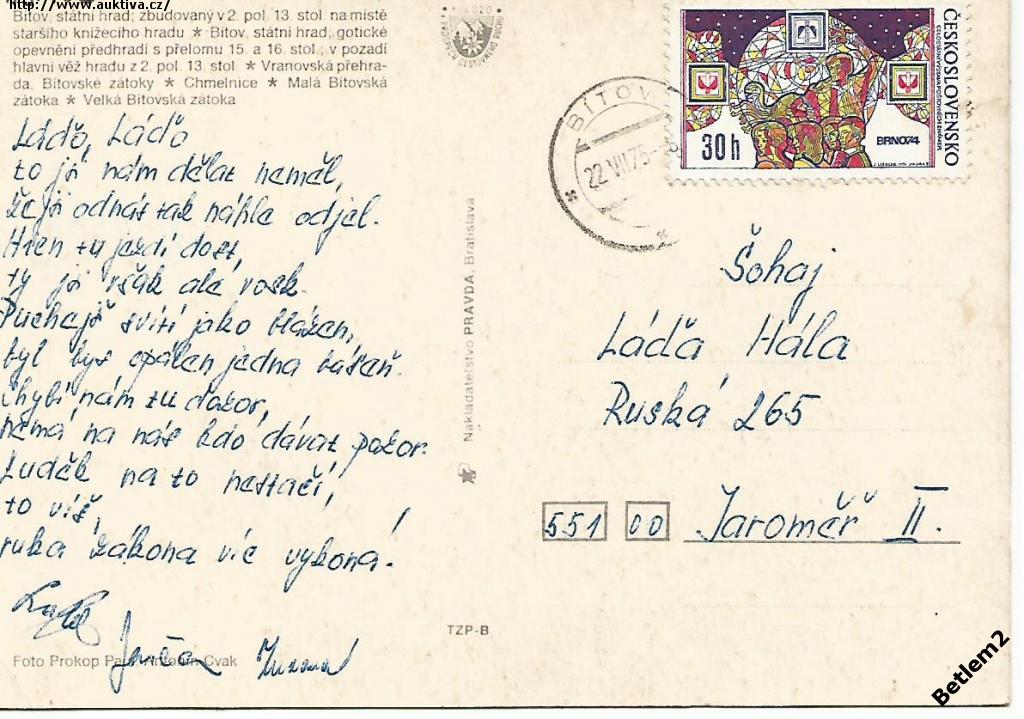 http://www.auktiva.cz/
Bítov, státní hrad; zbudovaný v 2. pol. 13. stol. na místě
staršího knížecího hradu * Bítov, státní hrad, gotické
opevnění předhradí s přelomu 15. a 16. stol., v pozadí
hlavní věž hradu z 2. pol. 13. stol * Vranovská přehra-
da, Bítovské zátoky * Chmelnice * Malá Bítovská
zátoka * Velká Bítovská zátoka
Láďo, Láďo
to jsi nám dělat neměl,
že jsi odnás tak náhle odjel.
tu jezdí dost,
ty jsi však ale
svítí jako blázen,
byl bys opálen jedna báseň.
Chybí nám tu dozor,
nemá na nás kdo dávat pozor.
Luděk na to nestačí,
to víš,
ruka zákona víc vykoná!
Foto Prokop Antonín Cvak
Nakladatelství PRAVDA, Bratislava
TZP-B
BÍTOV
22.VII.75-8
ČESKOSLOVENSKO
30h
BRNO74
Šohaj
Láďa Hála
Ruská 265
551 00 Jaroměř II.
Betlem2